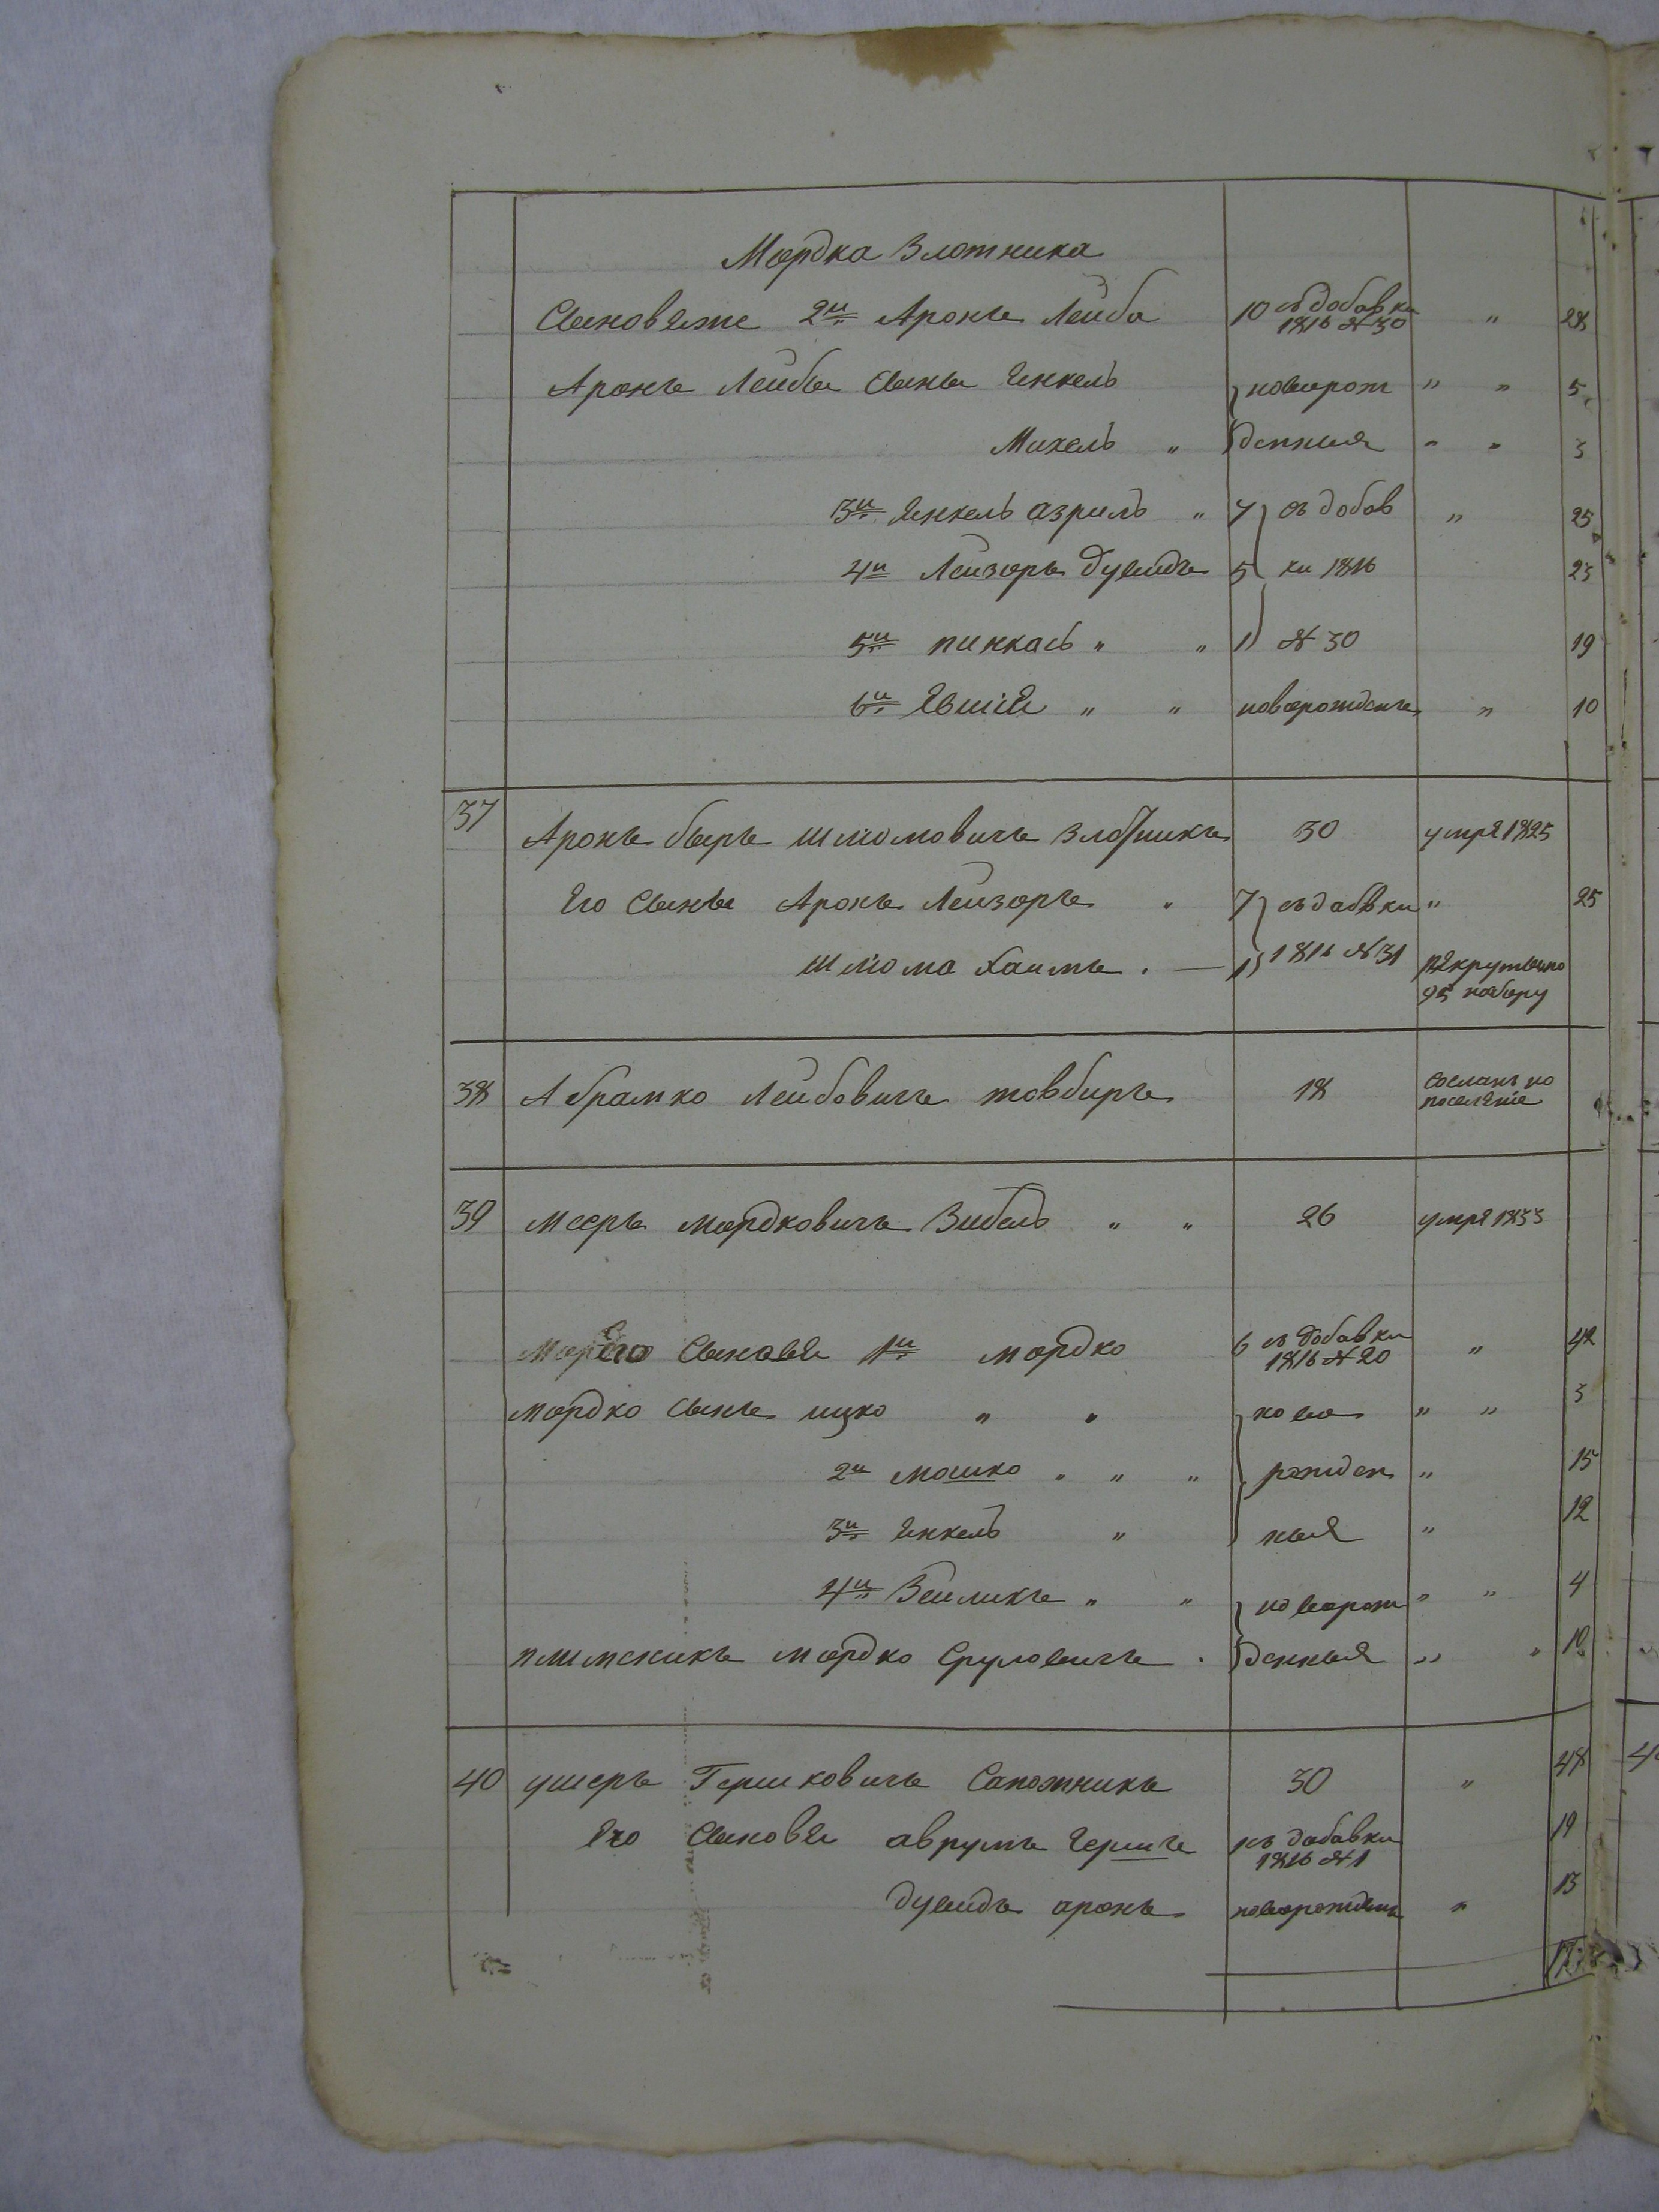 Мордка Злотника
Сыновъяже 2й Аронъ Лейба 10 съ добавки 1816 № 30 " 28
Аронъ Лейбы сыны Янкель новорож " " 5
Михель " денныя " " 3
3й Янкель азриль " 7 съ добав " 25
4й Лейзоръ Дувидъ 5 ки 1816 23
5й пинкась " " 1 № 30 19
6й Явшія " " новорожденъ " 10
37 Аронъ беръ шліомовичъ Злотникъ 30 умре 1825
Его Сыны Аронъ Лейзоръ " 7 съ дабвки " 25
шліома Хаимъ . — 1 1816 № 31 рекрутъ по
95 набору
38 Абрамко Лейбовичъ товбиръ 18 Сосланъ на
поселѣніе
39 Мееръ мордковичъ Зибель " " 26 умре 1833
Его Сыновя 1й мордко 6 съ добавки 1816 № 20 " 42
мордко сынъ ицко " " ново " " 3
2й мошко " " " рожден " 15
3й Янкель " ныя " 12
4й Зейликъ " " новорож " " 4
племеникъ мордко Сруловичъ . денныя " " 10
40 ушеръ Гершковичъ Сапожникъ 30 " 48
Его Сыновя аврумъ Герше 1 съ дабавки 1816 № 1 19
Дувидъ аронъ новорожденъ " 13